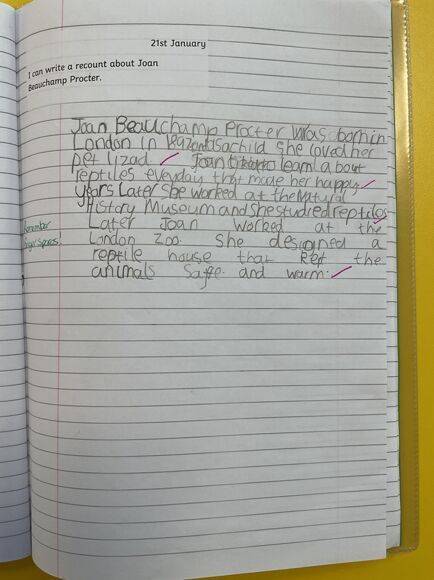 21st January
I can write a recount about Joan
Beauchamp Procter.
Joan Beauchamp Procter was born in
London in as a child she loved her
pet lizad. Joan learn about
reptiles eveyday that made her happy
years Later she worked at the Natural
History Museum and she studied reptiles
Remember
finger spaces!
Later Joan worked at the
London Zoo. She designed a
reptile house that kept the
animals saffe and warm.